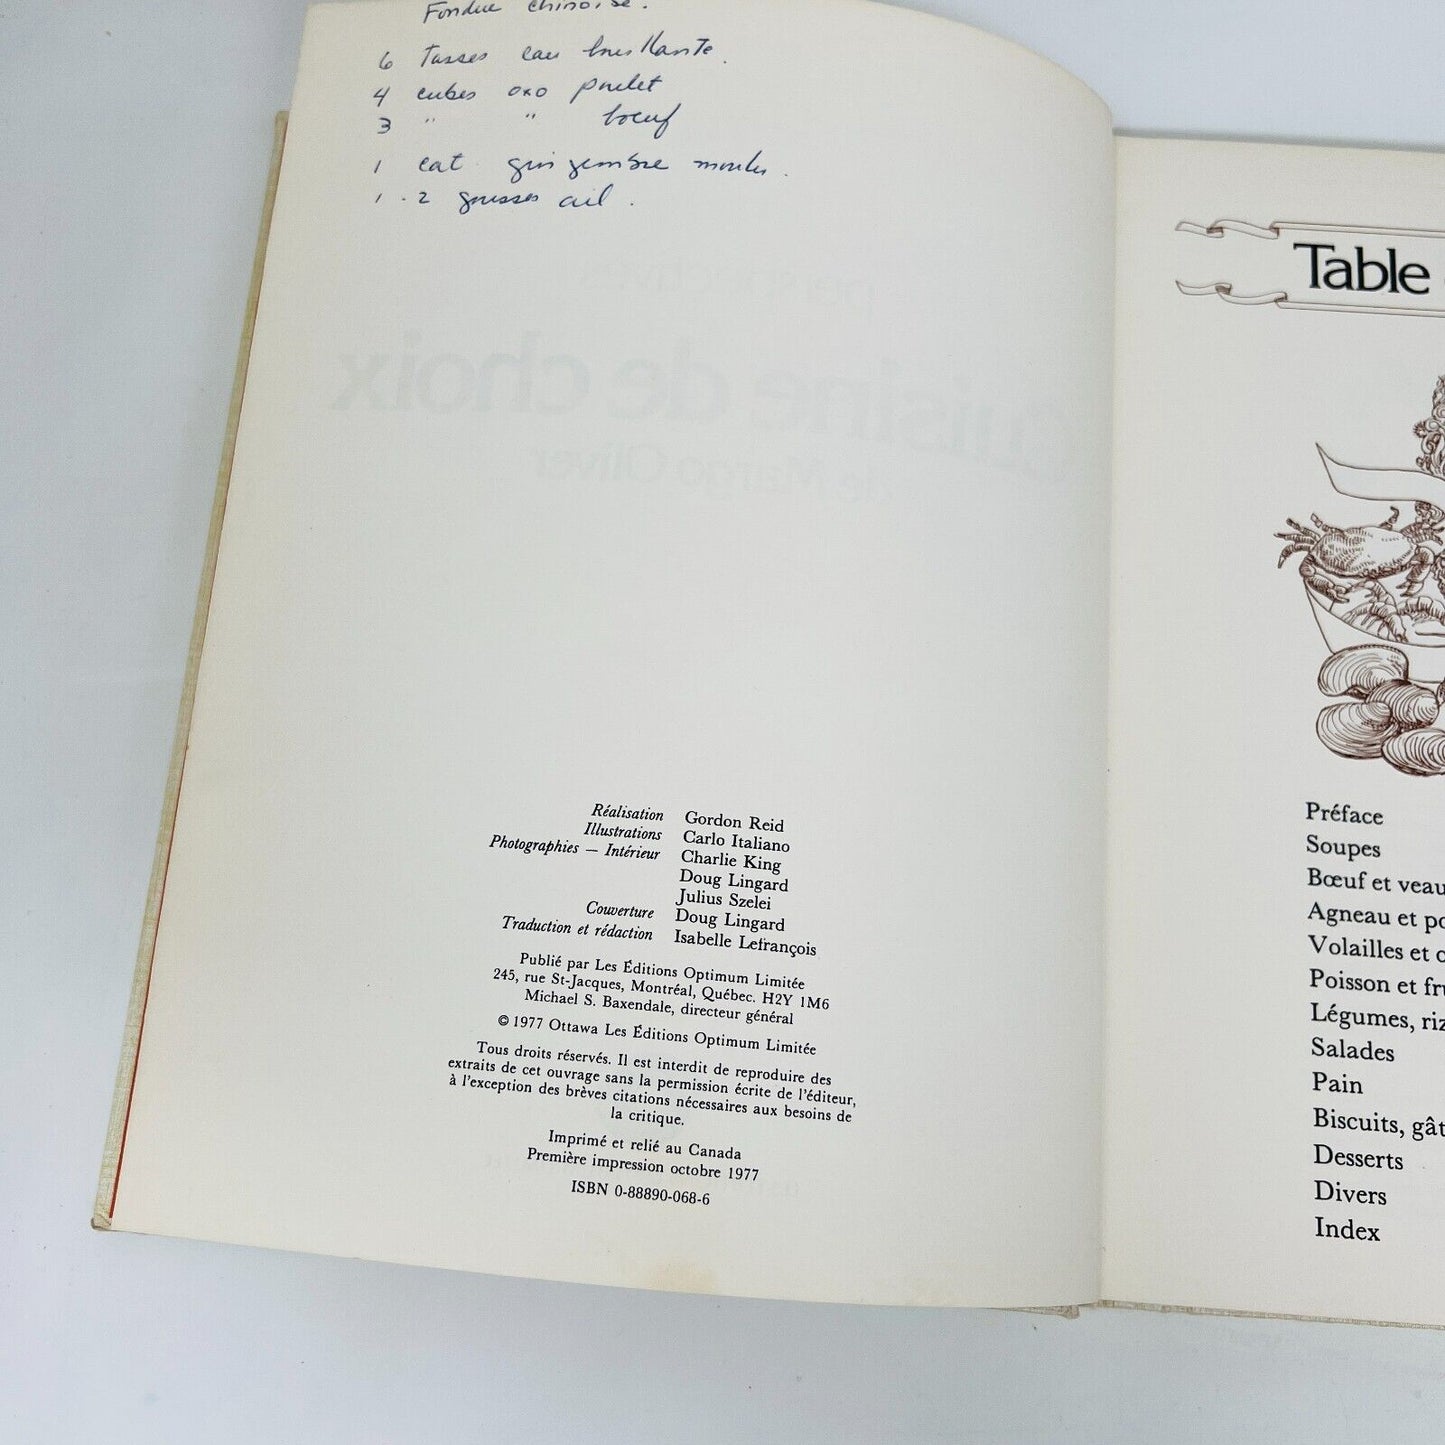 Fondue chinoise.
6 Tasses eau bouillante.
4 cubes oxo poulet
3 " " boeuf
1 cat gingembre moulu.
1.2 gousses ail.
cuisine de choix
de Margo Oliver
Réalisation Gordon Reid
Illustrations Carlo Italiano
Photographies — Intérieur Charlie King
Doug Lingard
Julius Szelei
Couverture Doug Lingard
Traduction et rédaction Isabelle Lefrançois
Publié par Les Éditions Optimum Limitée
245, rue St-Jacques, Montréal, Québec. H2Y 1M6
Michael S. Baxendale, directeur général
© 1977 Ottawa Les Éditions Optimum Limitée
Tous droits réservés. Il est interdit de reproduire des
extraits de cet ouvrage sans la permission écrite de l'éditeur,
à l'exception des brèves citations nécessaires aux besoins de
la critique.
Imprimé et relié au Canada
Première impression octobre 1977
ISBN 0-88890-068-6
Table
Préface
Soupes
Bœuf et veau
Agneau et po
Volailles et
Poisson et fru
Légumes, riz
Salades
Pain
Biscuits, gât
Desserts
Divers
Index